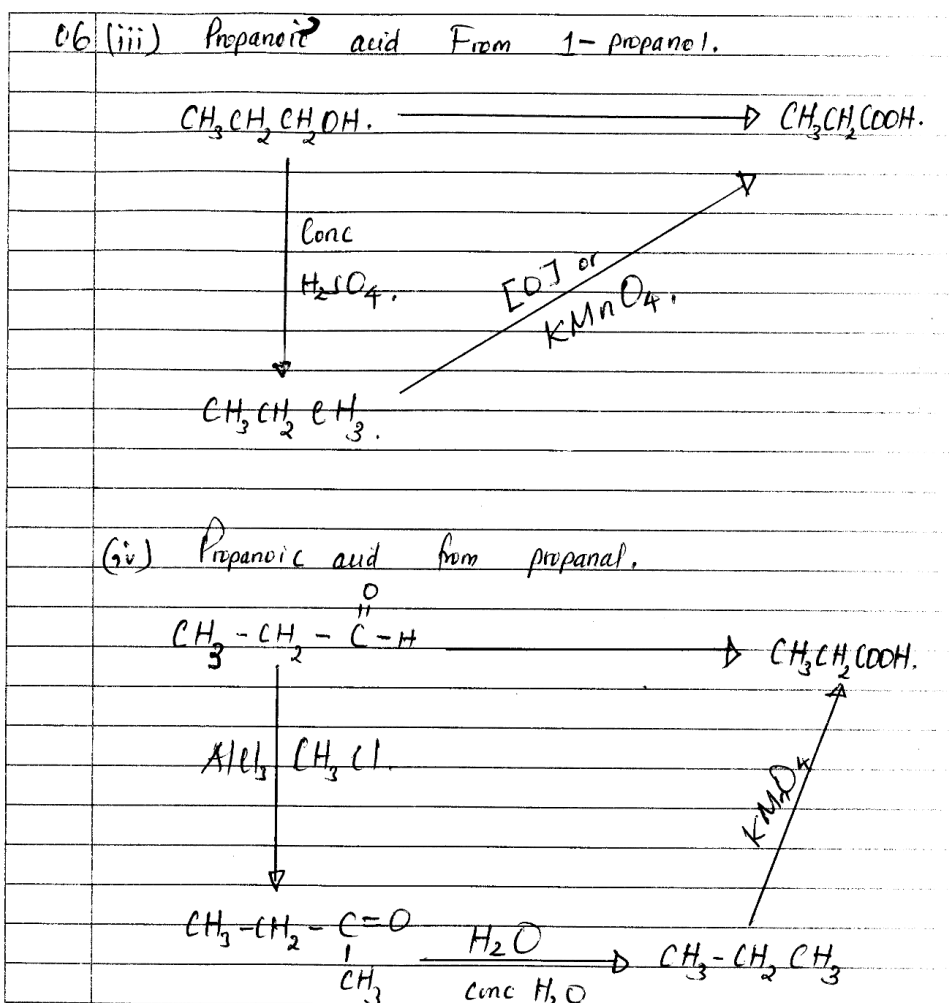 06 (iii) Propanoic acid From 1-propanol.
CH₃CH₂CH₂OH. CH₃CH₂COOH.
Conc
H₂SO₄.
[O] or
KMnO₄.
CH₃CH₂CH₃.
(iv) Propanoic acid from propanal.
O
CH₃-CH₂-C-H CH₃CH₂COOH.
AlCl₃ CH₃Cl.
KMnO₄
CH₃-CH₂-C=O H₂O CH₃-CH₂CH₃
CH₃ conc H₂O